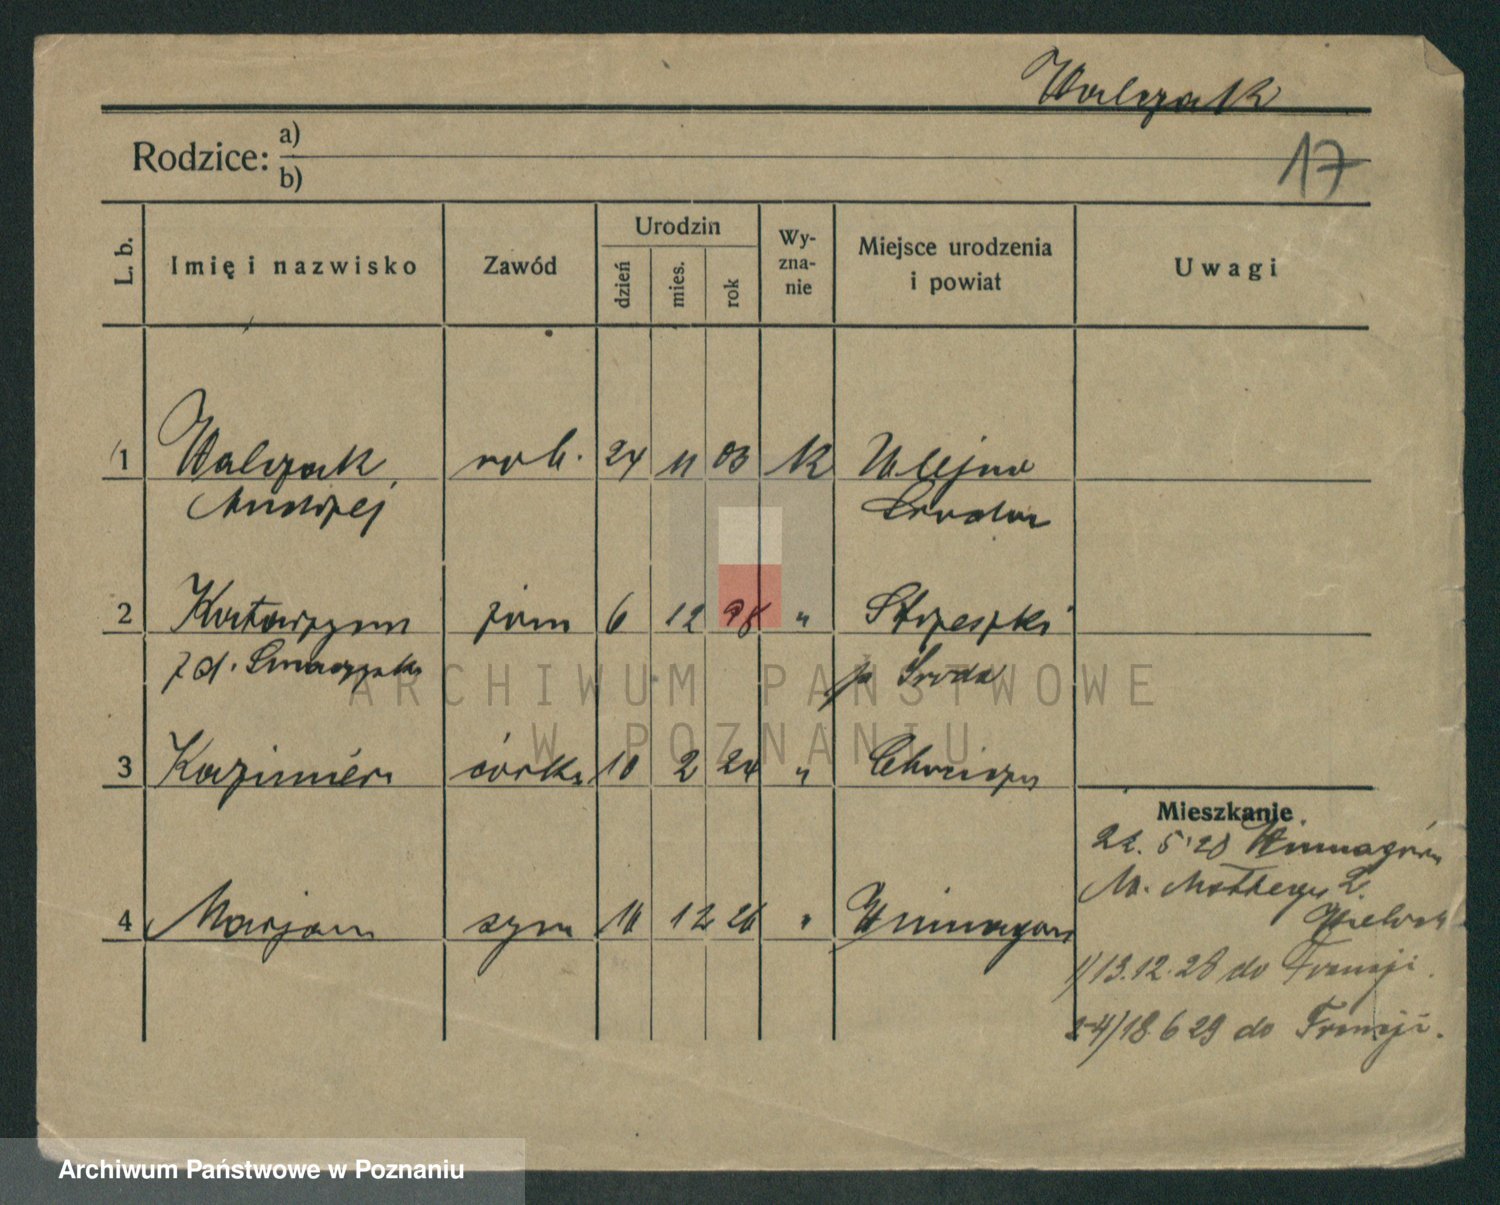 Walczak
Rodzice: a)
b)
17
L. b. Imię i nazwisko Zawód Urodzin dzień mies. rok Wy-zna-nie Miejsce urodzenia i powiat Uwagi
1 Walczak rob. 24 11 03 K Ulejno
Andrzej Środa
2 Katarzyna żona 6 12 98 " Strzeszki
z d. p. Środa
3 Kazimiera córka 10 2 24 "
Mieszkanie
22. 5. 28 Winnagóra
4 Marjan syn 12 26 " Winnagóra
1) 13.12.28 do Francji.
2-4) 18.6 29 do Francji.
ARCHIWUM PAŃSTWOWE
W POZNANIU
Archiwum Państwowe w Poznaniu